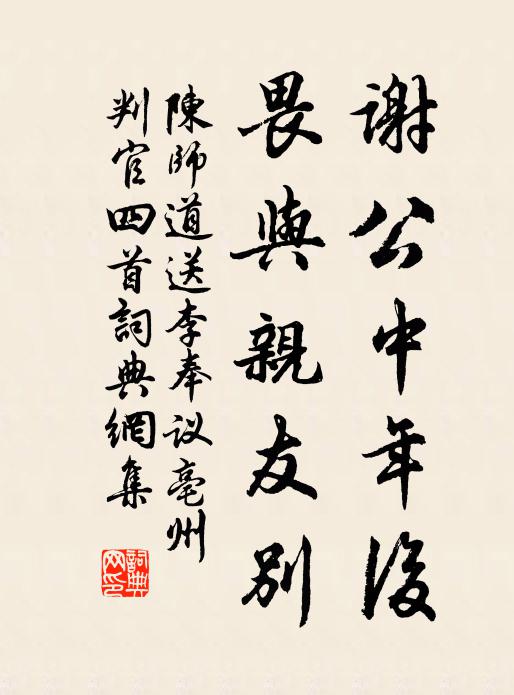 謝公中年後
畏與親友別
陳師道送李奉议亳州
判官四首詞典網集
詞典网印